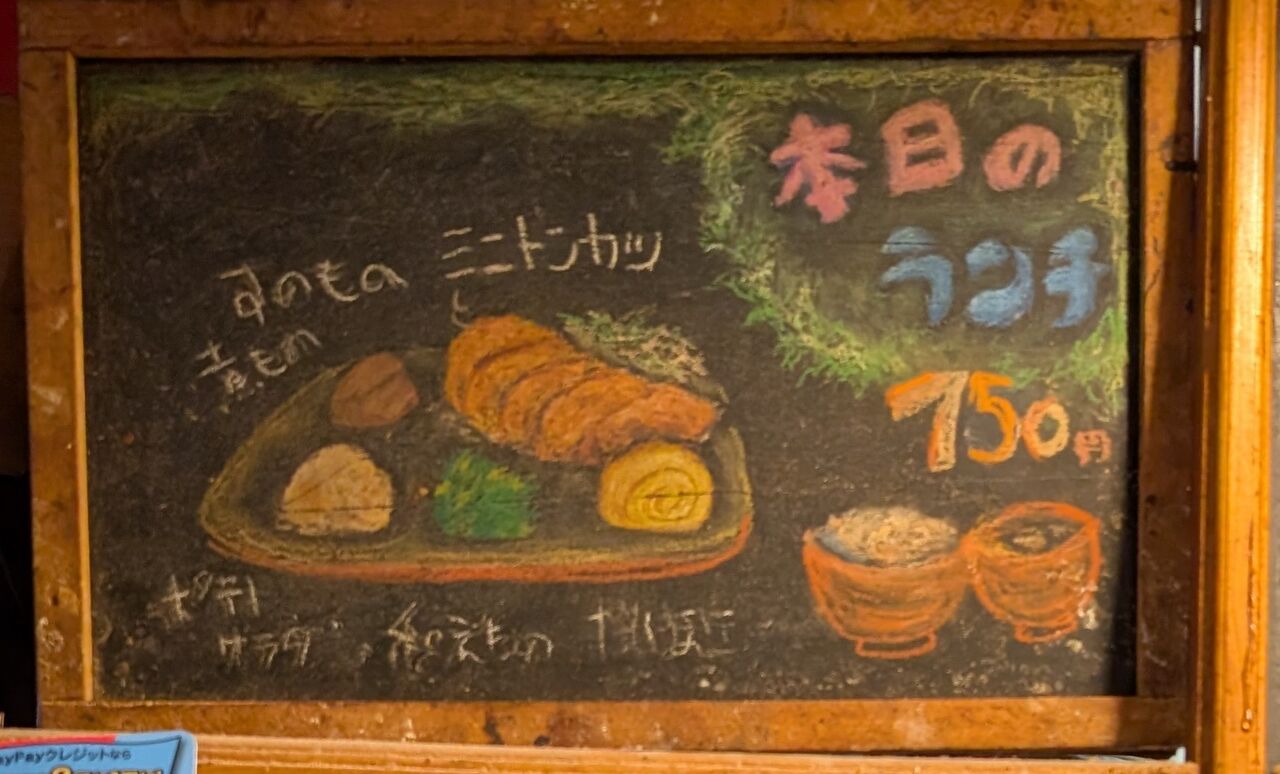 本日の
ランチ
750円
ミニトンカツ
すのもの
煮もの
ポテト
サラダ
和えもの
PayPayクレジットなら